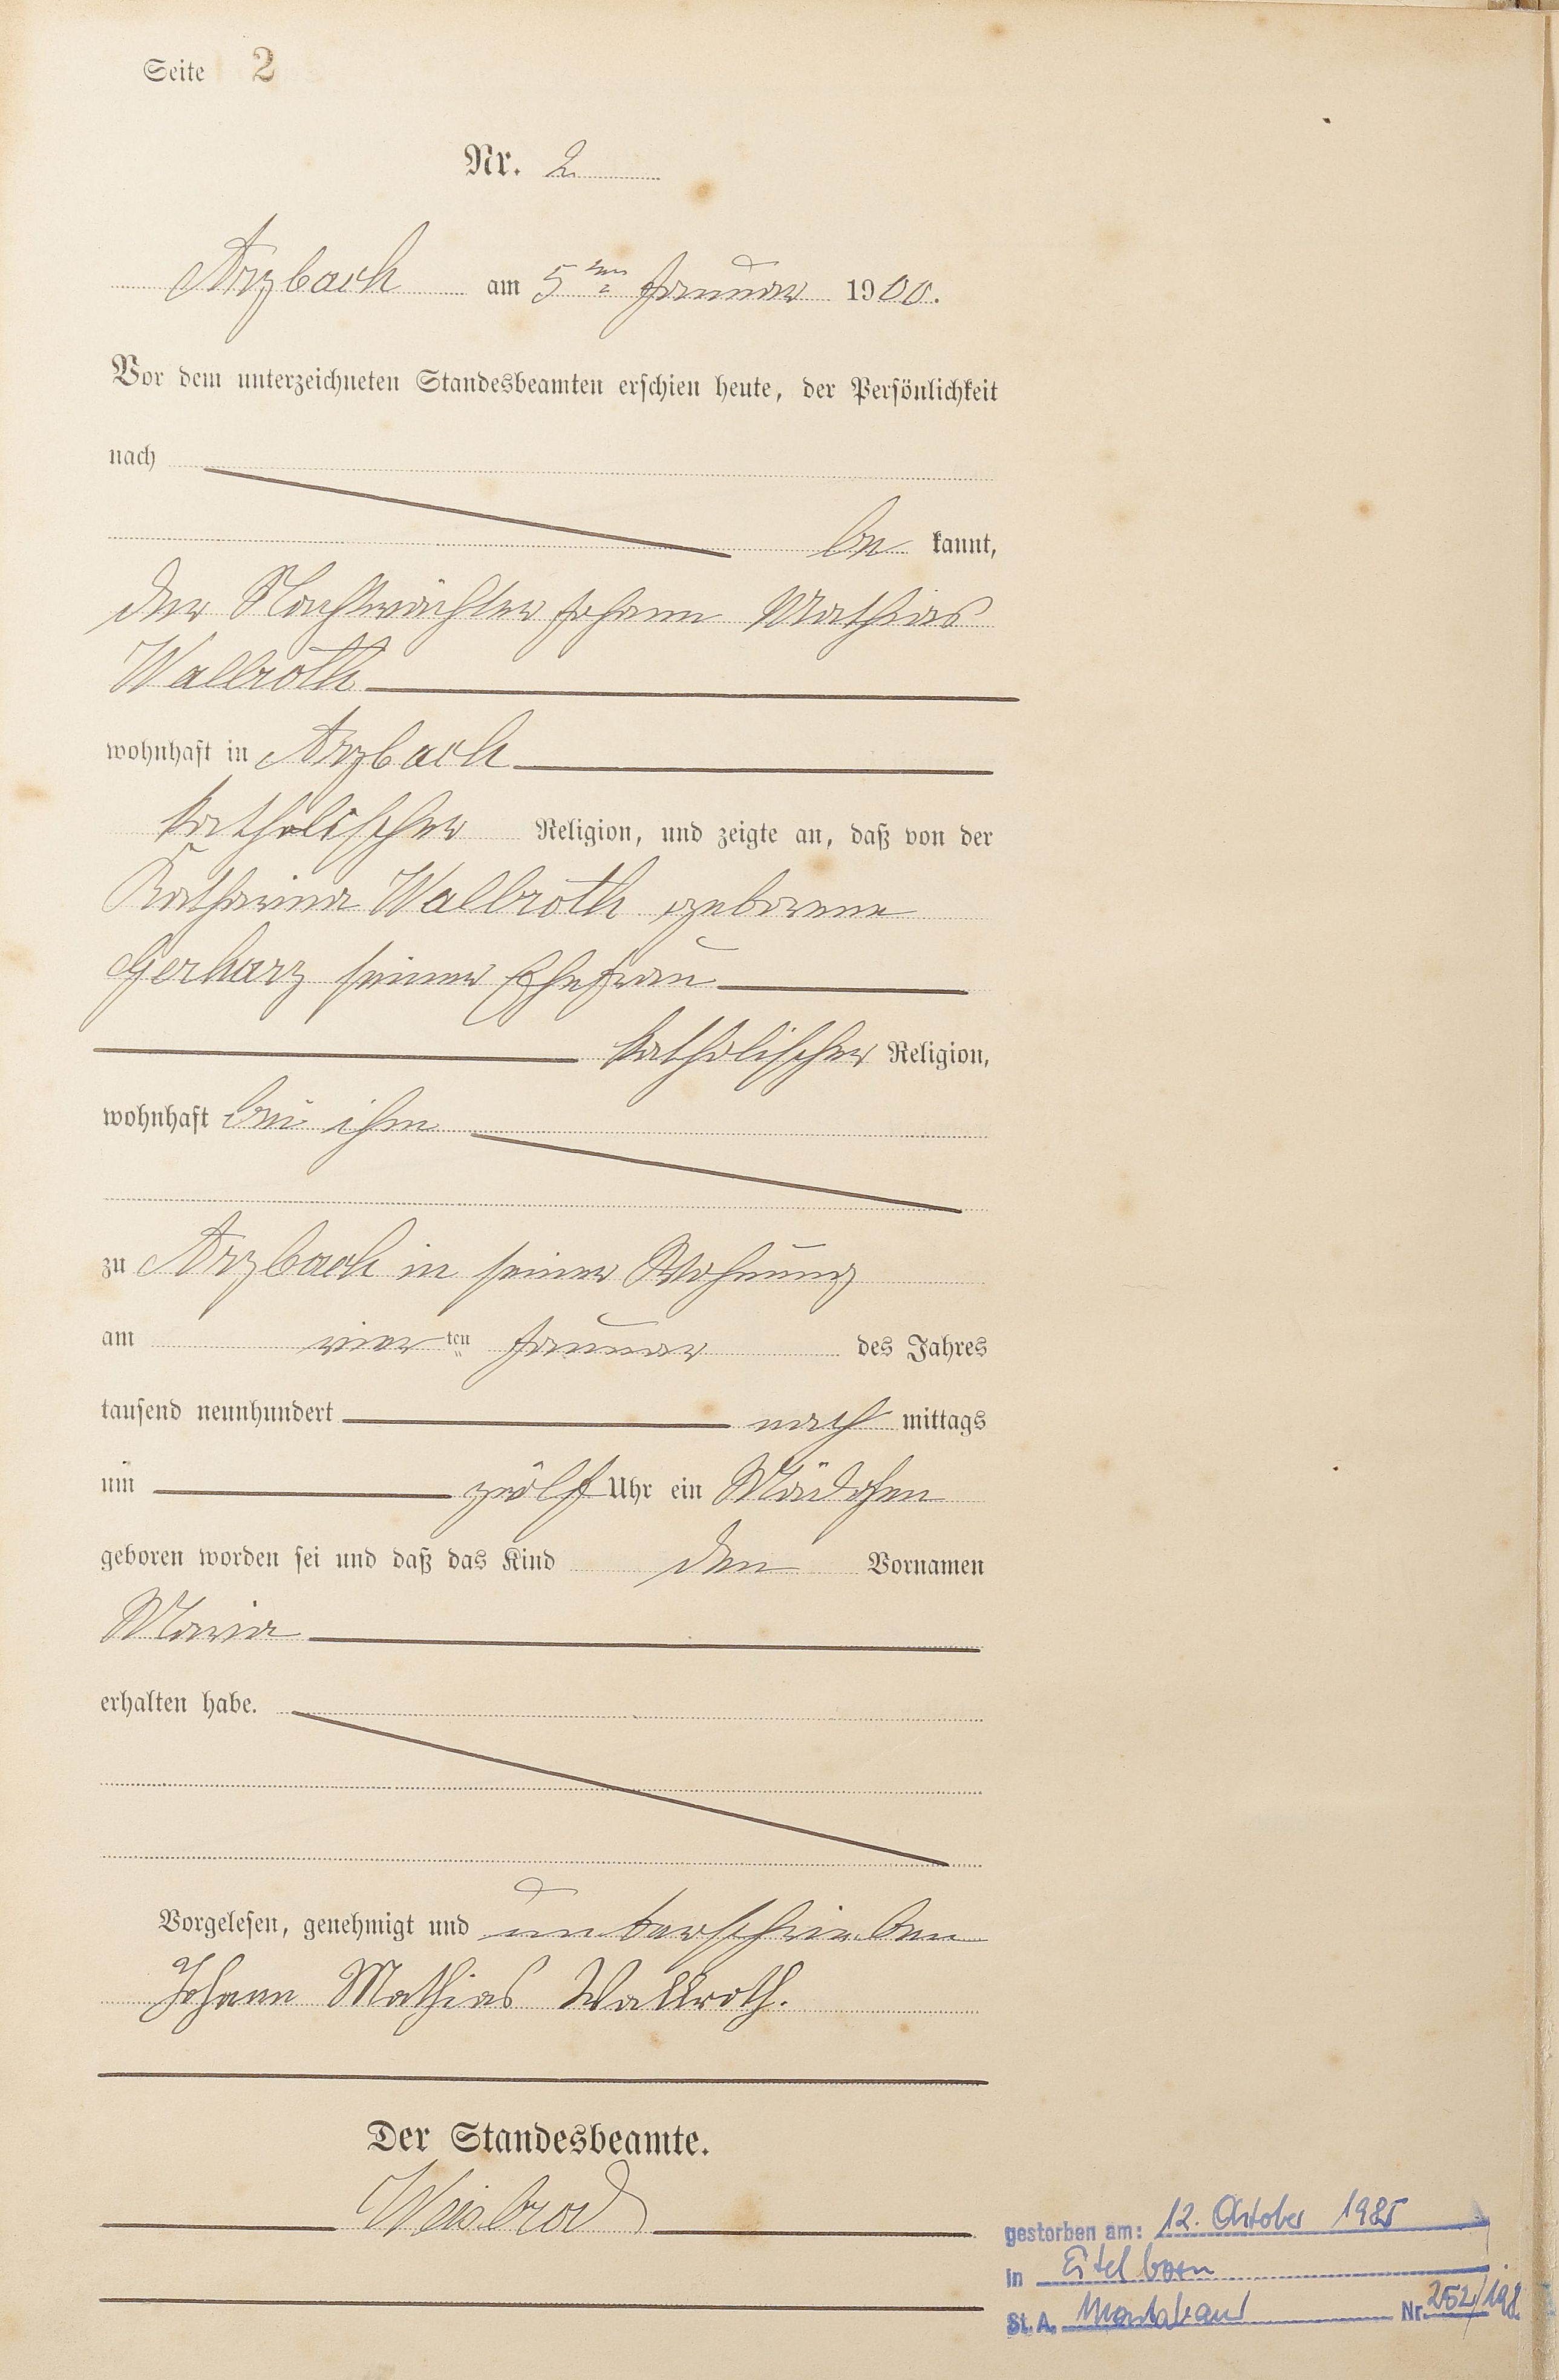 Seite 2
Nr. 2
Arzbach am 5ten Januar 1900.
Vor dem unterzeichneten Standesbeamten erschien heute, der Persönlichkeit
nach
be kannt,
der Nachtwächter Johann Mathias
Wallroth
wohnhaft in Arzbach
katholischer Religion, und zeigte an, daß von der
Katharina Wallroth geborene
Gerharz seiner Ehefrau
katholischer Religion,
wohnhaft bei ihm
zu Arzbach in seiner Wohnung
am vier ten Januar des Jahres
tausend neunhundert nach mittags
um zwölf Uhr ein Mädchen
geboren worden sei und daß das Kind den Vornamen
Maria
erhalten habe.
Vorgelesen, genehmigt und unterschrieben
Johann Mathias Wallroth.
Der Standesbeamte.
Weisbrod
gestorben am: 12. Oktober 1985
in Eitelborn
St. A. Montabaur Nr. 252/198